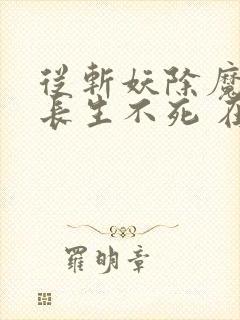 從斬妖除魔
長生不死 在
羅明章